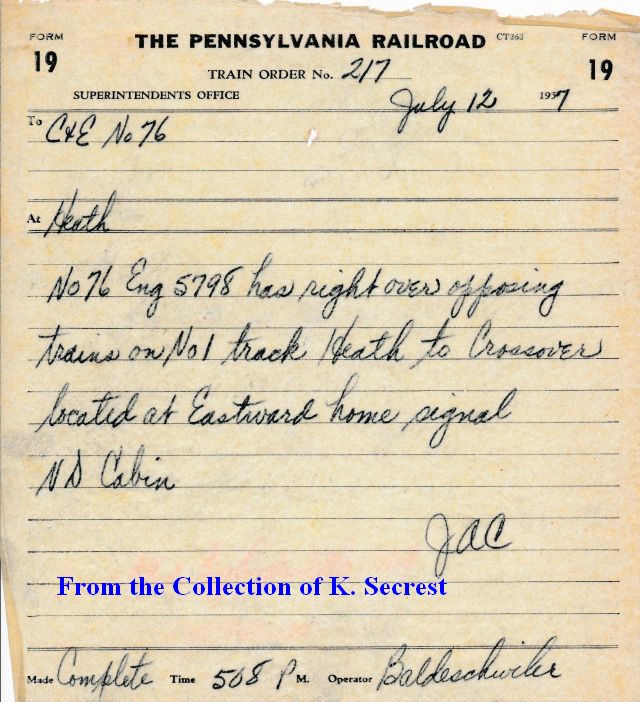 FORM THE PENNSYLVANIA RAILROAD CT262 FORM
19 TRAIN ORDER No. 217 19
SUPERINTENDENTS OFFICE July 12 1957
To C&E No 76
At Heath
No 76 Eng 5798 has right over opposing
trains on No 1 track Heath to Crossover
located at Eastward home signal
ND Cabin
JAC
From the Collection of K. Secrest
Made Complete Time 508 P M. Operator Baldeschwiler